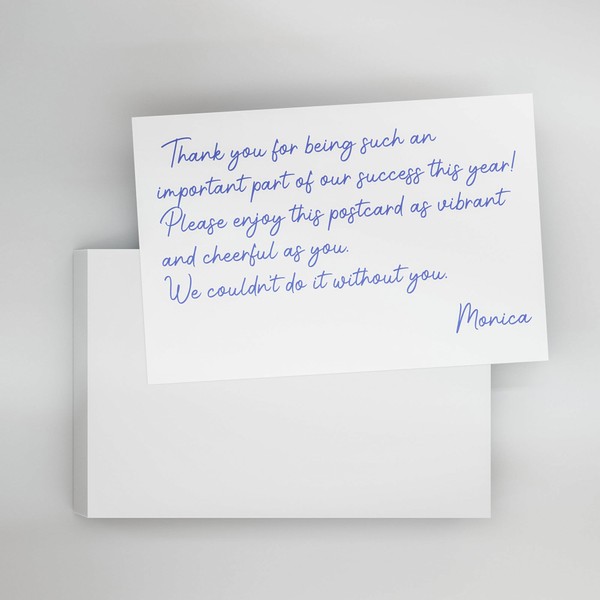 Thank you for being such an
important part of our success this year!
Please enjoy this postcard as vibrant
and cheerful as you.
We couldn't do it without you.
Monica